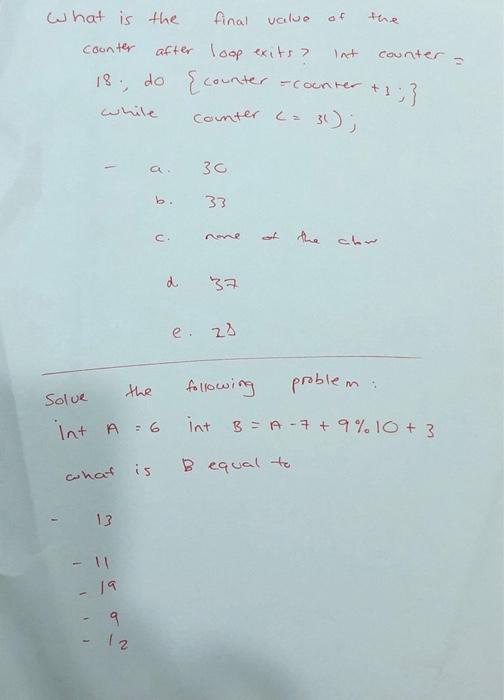 What is the final value of the
counter after loop exits? Int counter =
18; do {counter =counter +3;}
while counter <= 31);
- a. 30
b. 33
c. none of the
d 37
e. 28
Solve the following problem:
int A = 6 int B = A - 7 + 9 % 10 + 3
what is B equal to
- 13
- 11
- 19
- 9
- 12